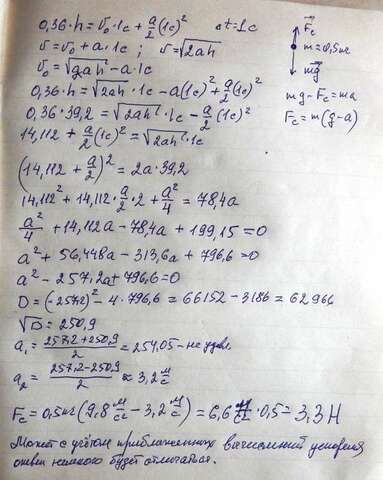 0,36·h = v₀·1c + a/2 (1c)²   t=1c
v = v₀ + a·1c ; v = √2ah
v₀ = √2ah - a·1c
0,36·h = √2ah·1c - a(1c)² + a/2 (1c)²
0,36·39,2 = √2ah·1c - a/2 (1c)²
14,112 + a/2 (1c)² = √2ah·1c
(14,112 + a/2)² = 2a·39,2
14,112² + 14,112·a/2·2 + a²/4 = 78,4a
a²/4 + 14,112a - 78,4a + 199,15 = 0
a² + 56,448a - 313,6a + 796,6 = 0
a² - 257,2a + 796,6 = 0
D = (-257,2)² - 4·796,6 = 66152 - 3186 = 62966
√D = 250,9
a₁ = (257,2+250,9)/2 = 254,05 - не удовл
a₂ = (257,2-250,9)/2 ≈ 3,2 м/с
Fc = 0,5кг(9,8 м/с - 3,2 м/с) = 6,6 м/с·0,5 = 3,3 Н
Может с учётом приближенных вычислений ускорения
ответ немного будет отличаться.
Fc
m=0,5кг
mg
mg - Fc = ma
Fc = m(g-a)